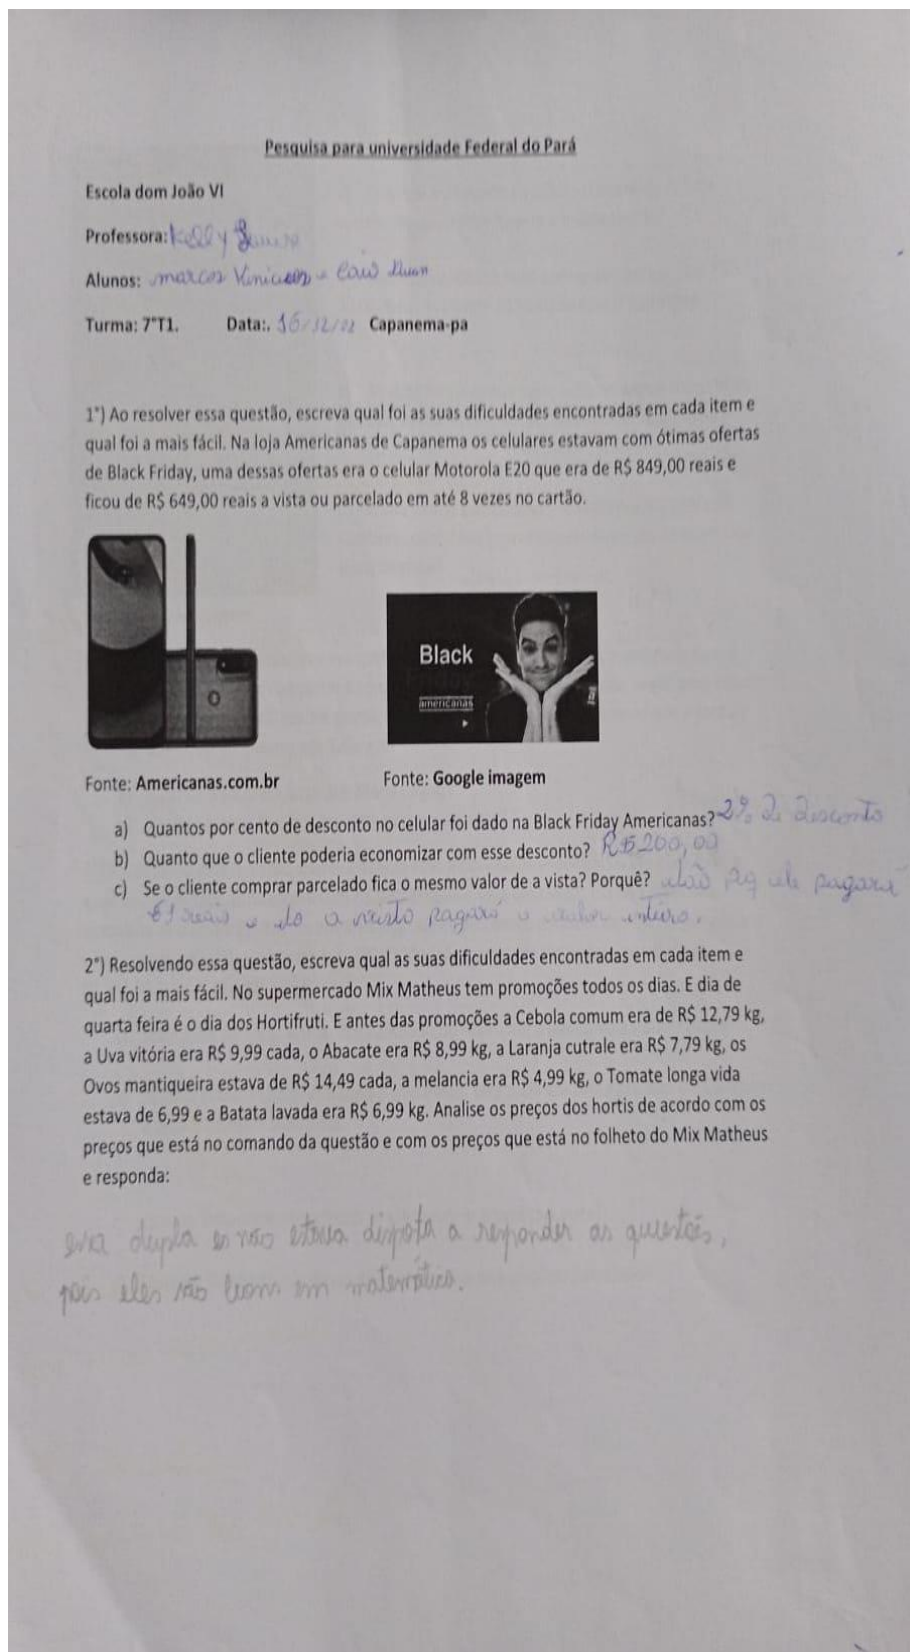 Pesquisa para universidade Federal do Pará
Escola dom João VI
Professora: Kelly
Alunos: marcos Vinicius e
Turma: 7°T1. Data:. 16/12/22 Capanema-pa
1°) Ao resolver essa questão, escreva qual foi as suas dificuldades encontradas em cada item e
qual foi a mais fácil. Na loja Americanas de Capanema os celulares estavam com ótimas ofertas
de Black Friday, uma dessas ofertas era o celular Motorola E20 que era de R$ 849,00 reais e
ficou de R$ 649,00 reais a vista ou parcelado em até 8 vezes no cartão.
Black
americanas
Fonte: Americanas.com.br Fonte: Google imagem
a) Quantos por cento de desconto no celular foi dado na Black Friday Americanas? 2% De Disconto
b) Quanto que o cliente poderia economizar com esse desconto? R$ 200,00
c) Se o cliente comprar parcelado fica o mesmo valor de a vista? Porquê? não pq ele pagará
81 reais e do a visto pagará o valor inteiro.
2°) Resolvendo essa questão, escreva qual as suas dificuldades encontradas em cada item e
qual foi a mais fácil. No supermercado Mix Matheus tem promoções todos os dias. E dia de
quarta feira é o dia dos Hortifruti. E antes das promoções a Cebola comum era de R$ 12,79 kg,
a Uva vitória era R$ 9,99 cada, o Abacate era R$ 8,99 kg, a Laranja cutrale era R$ 7,79 kg, os
Ovos mantiqueira estava de R$ 14,49 cada, a melancia era R$ 4,99 kg, o Tomate longa vida
estava de 6,99 e a Batata lavada era R$ 6,99 kg. Analise os preços dos hortis de acordo com os
preços que está no comando da questão e com os preços que está no folheto do Mix Matheus
e responda:
essa dupla não estava disposta a responder as questões,
pois eles não bons em matemática.